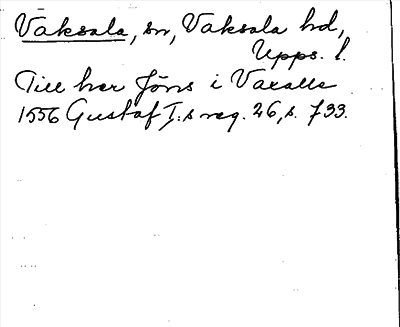 Vaksala, sn, Vaksala hd,
Upps. l.
Till her Jöns i Vaxalle
1556 Gustaf I:s reg. 26, s. 733.